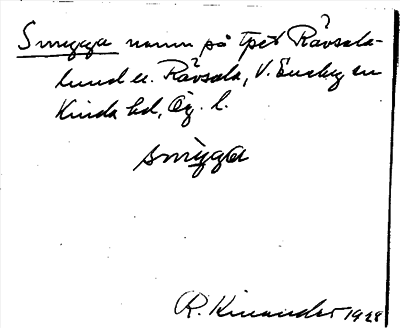 Smygga namn på tpet Rävsala-
lund u. Rävsala, V. Eneby sn
Kinda hd, Ög. l.
smyga
R. Kinander 1928